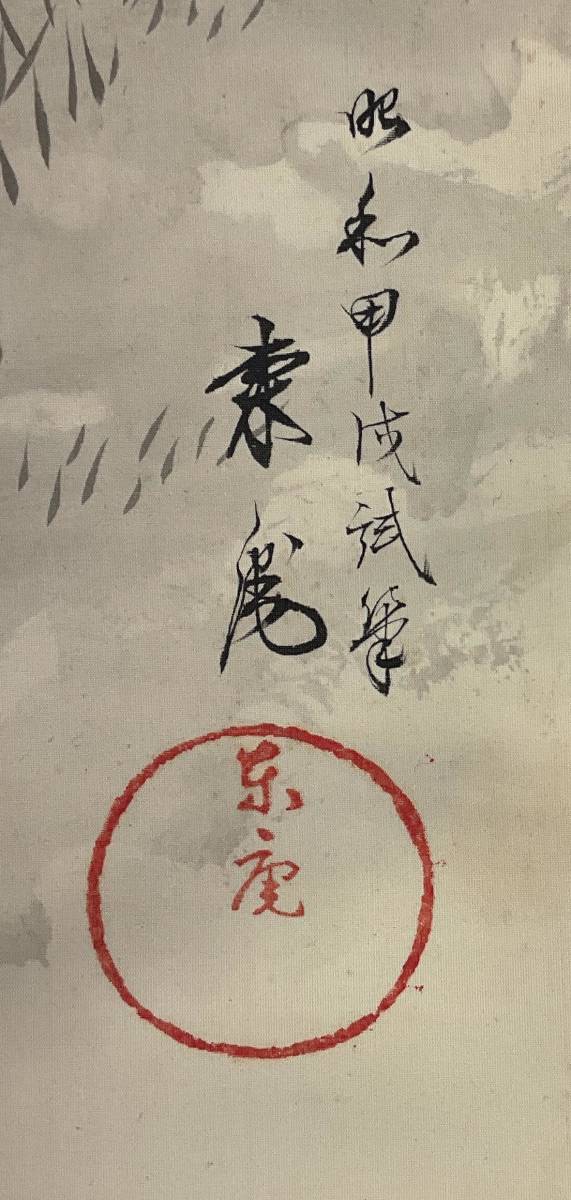 昭和甲戌試筆
東虎
東虎